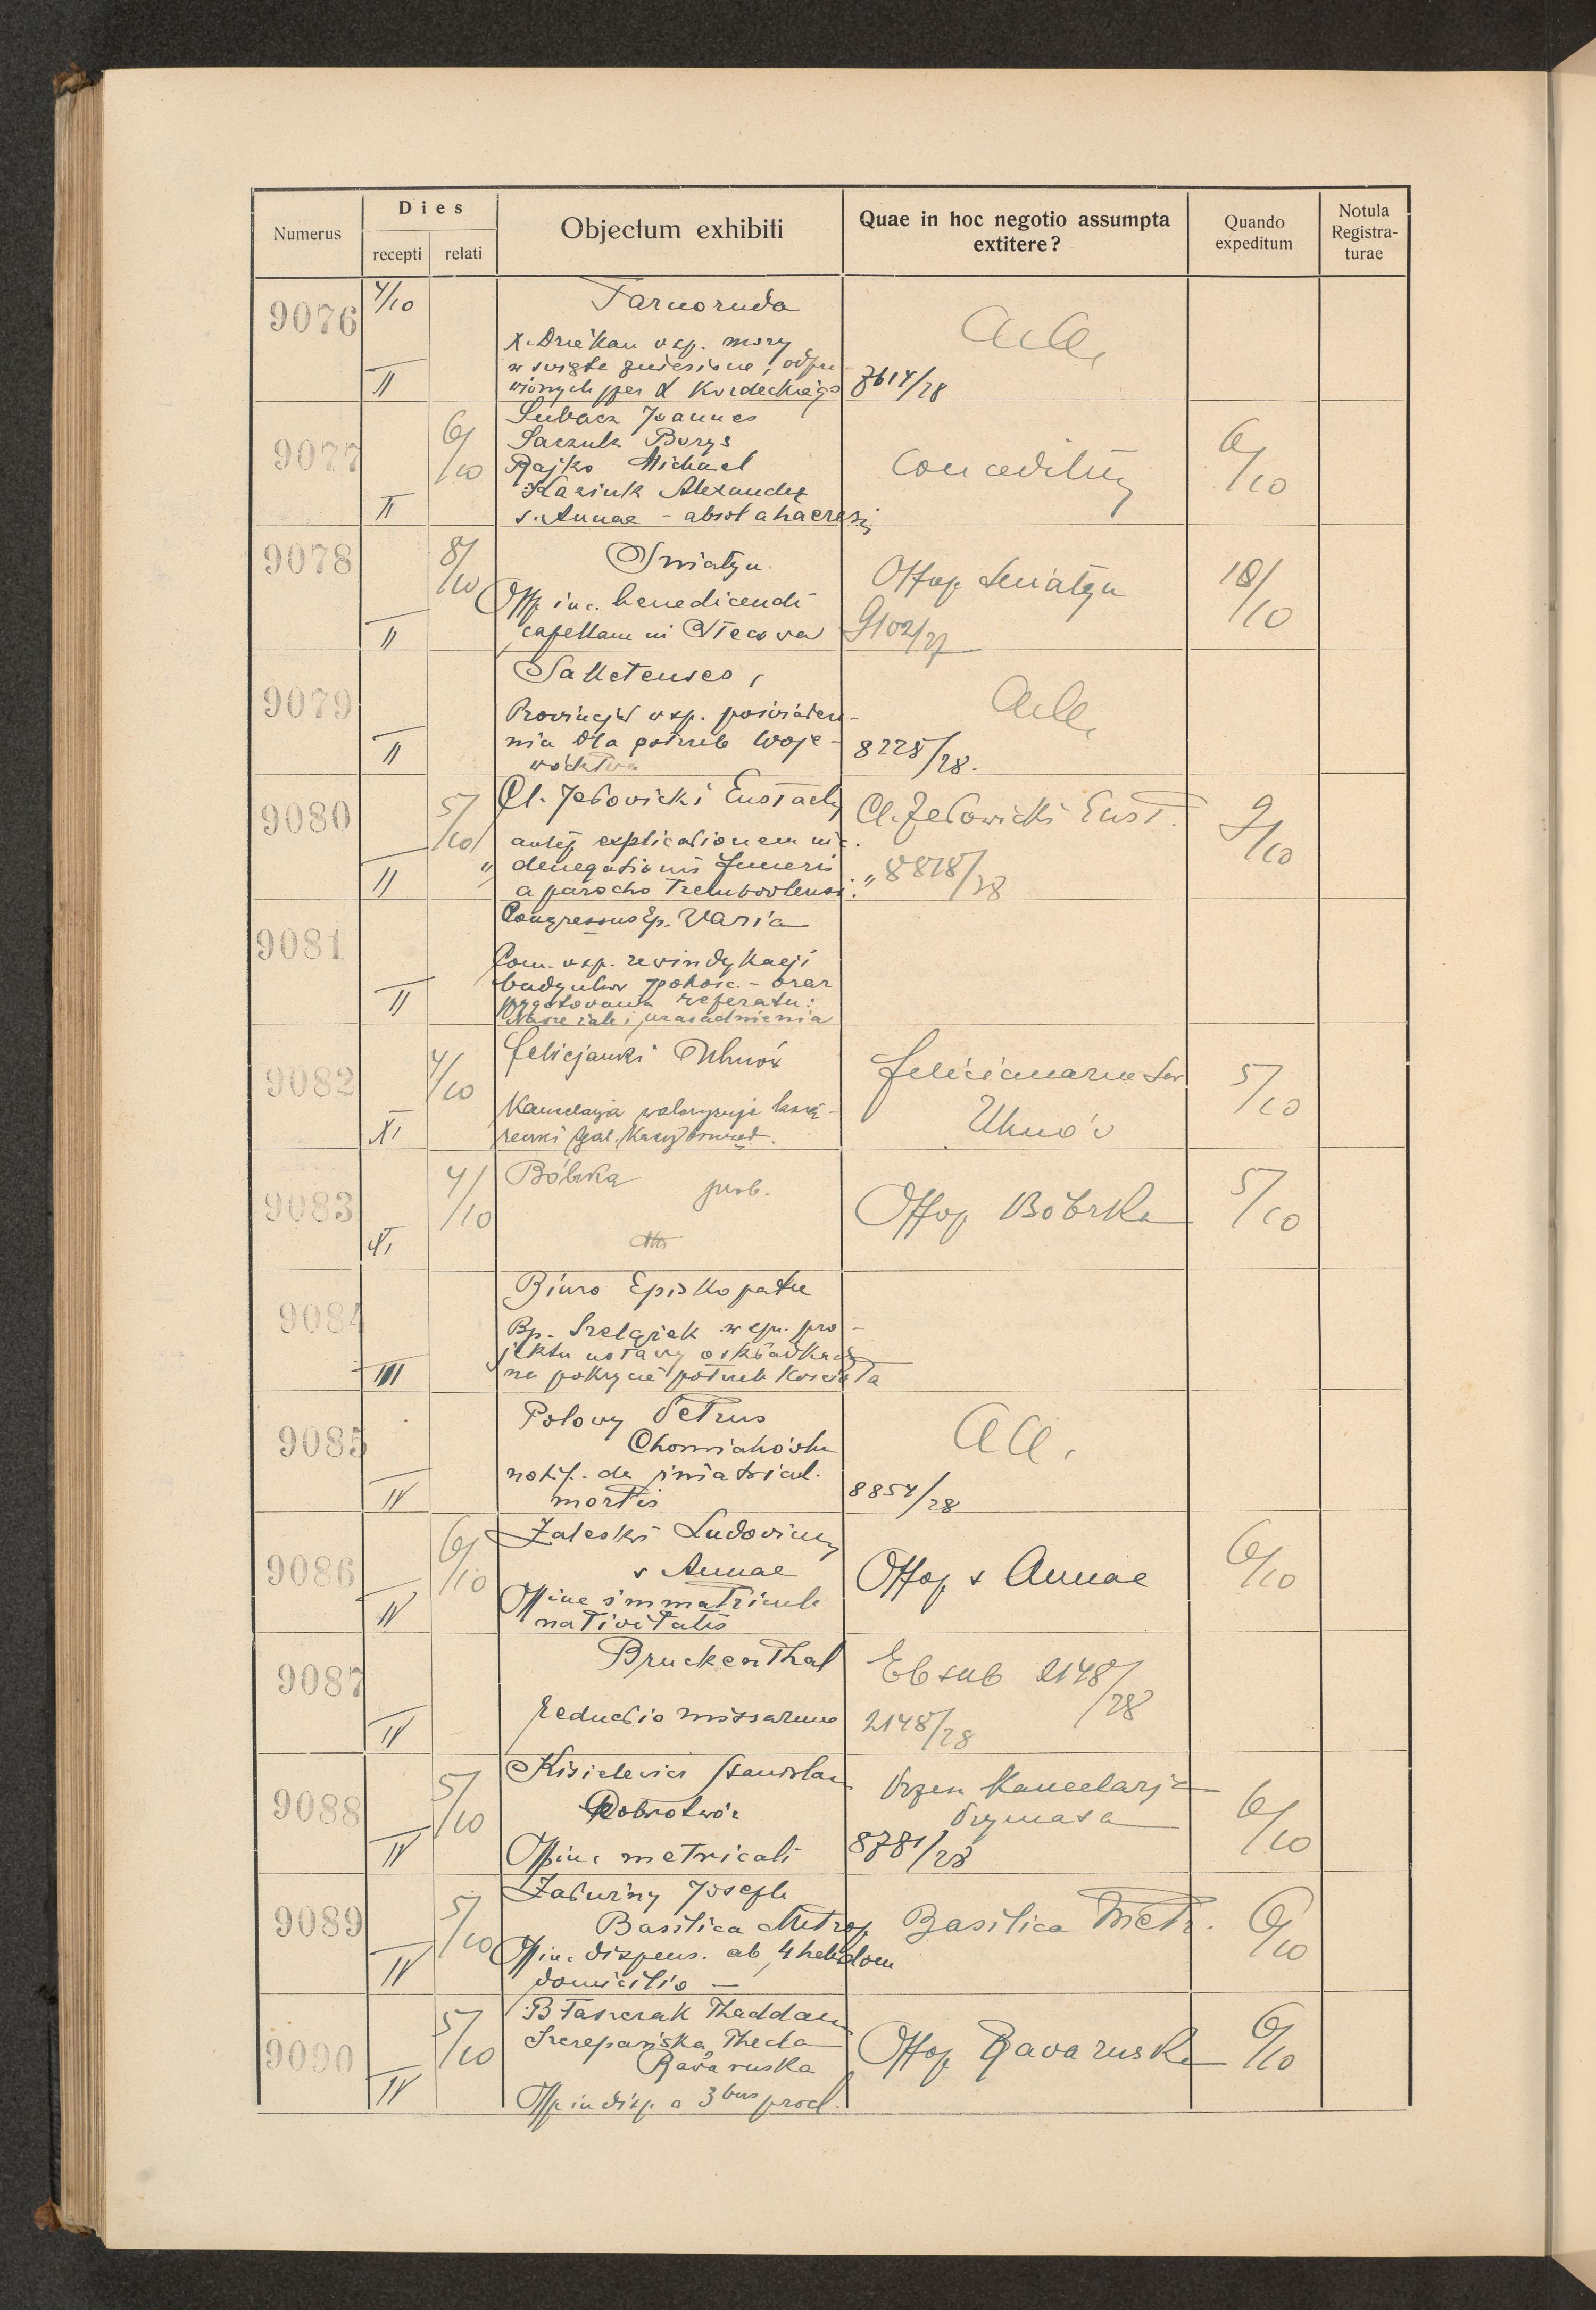 Numerus
Dies
recepti
relati
Objectum exhibiti
Quae in hoc negotio assumpta
extitere?
Quando
expeditum
Notula
Registra-
turae
9076
4/10
II
Tarnoruda
X. Dziekan wsp. mszy
w święta zniesione, odpra-
wionych per X Kordeckiego
7614/28
9077
II
6/10
Joannes
Saczuk Borys
Rajko Michael
Kaziuk Alexander
s. Annae - absol a haeresi
conceditur
6/10
9078
II
8/10
Sniatyn
Offp inc. benedicendi
capellam in Stecowa
Offop Sniatyn
9102/27
10/10
9079
II
Saletenses,
Prowincjał wsp. poświadcze-
nia dla potrzeb Woje-
wództwa
8228/28.
9080
II
5/10
Cl. Jełowicki Eustachy
explicationem
denegationis funeris
a parocho Trembovlensi.
Cl. Jełowicki Eust.
8818/28
9/10
9081
II
Congressus Ep. Varia
Com. wsp. rewindykacji
oraz
referatu:
i uzasadnienia
9082
XI
4/10
Felicjanki Uhnów
Kancelarja waloryzuje
Uhnów
5/10
9083
XI
4/10
Bóbrka prob.
Offop Bóbrka
5/10
9084
III
Biuro Episkopatu
Bp. Szelążek w sp. pro-
jektu ustawy o składkach
na pokrycie potrzeb Kościoła
9085
IV
Polowy Petrus
notif. de immatricul.
mortis
8854/28
9086
IV
6/10
Zaleski Ludovicus
s Annae
Offp inc immatricul
nativitatis
Offop s Annae
6/10
9087
IV
Bruckenthal
Reductio missarum
Eb sub 2148/28
2148/28
9088
IV
5/10
Kisielewicz Stanislaus
Dobrotwór
Offp inc metricali
Kancelarja
Prymasa
8781/28
6/10
9089
IV
5/10
Joseph
Basilica Metrop.
Offp inc dispens. ab 4 hebdom
domicilio —
Basilica Metr.
6/10
9090
IV
5/10
Błaszczak Thaddaeus
Szczepańska Thecla
Rawa ruska
Offp in disp. a 3bus procl.
Offop Rava ruska
6/10